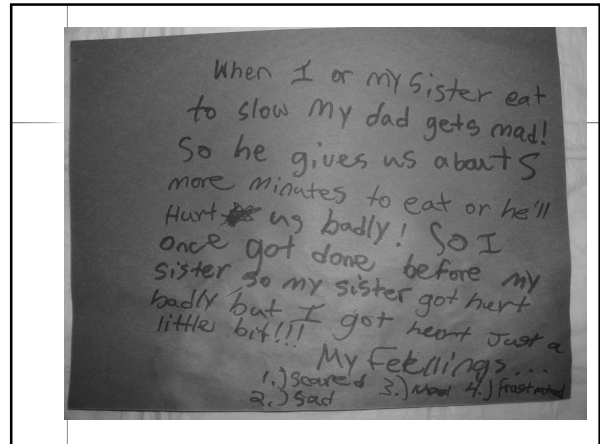 When I or my sister eat
to slow my dad gets mad!
So he gives us about 5
more minutes to eat or he'll
Hurt us badly! So I
once got done before my
sister so my sister got hurt
badly but I got heart Just a
little bit!!!
My Feellings...
1.) scared 3.) Mad 4.) frustrated
2.) Sad